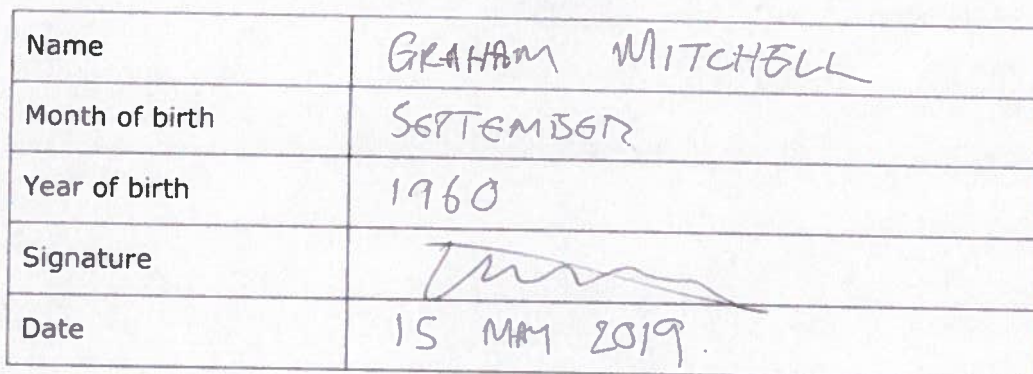 Name GRAHAM MITCHELL
Month of birth SEPTEMBER
Year of birth 1960
Signature
Date 15 MAY 2019.